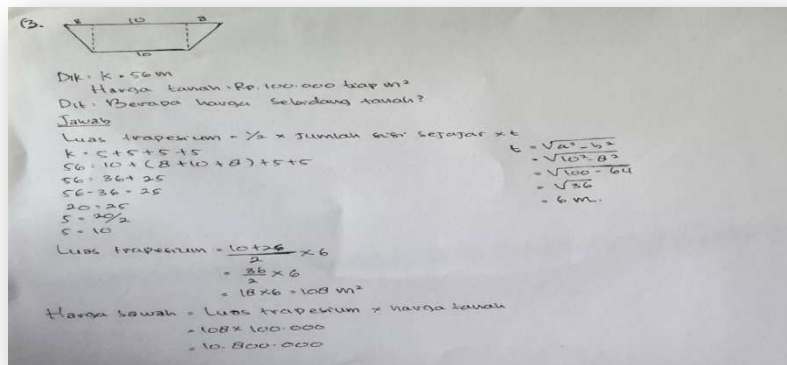 13.
8 10 8
10
Dik : K = 56 m
Harga tanah = Rp. 100.000 tiap m²
Dit : Berapa harga sebidang tanah?
Jawab
Luas trapesium = 1/2 x Jumlah sisi sejajar x t
K = s + s + s + s
56 = 10 + (8 + 10 + 8) + s + s
56 = 36 + 2s
56 - 36 = 2s
20 = 2s
s = 20/2
s = 10
t = √a² - b²
= √10² - 8²
= √100 - 64
= √36
= 6 m.
Luas trapesium = 10+26/2 x 6
= 36/2 x 6
= 18 x 6 = 108 m²
Harga sawah = Luas trapesium x harga tanah
= 108 x 100.000
= 10.800.000